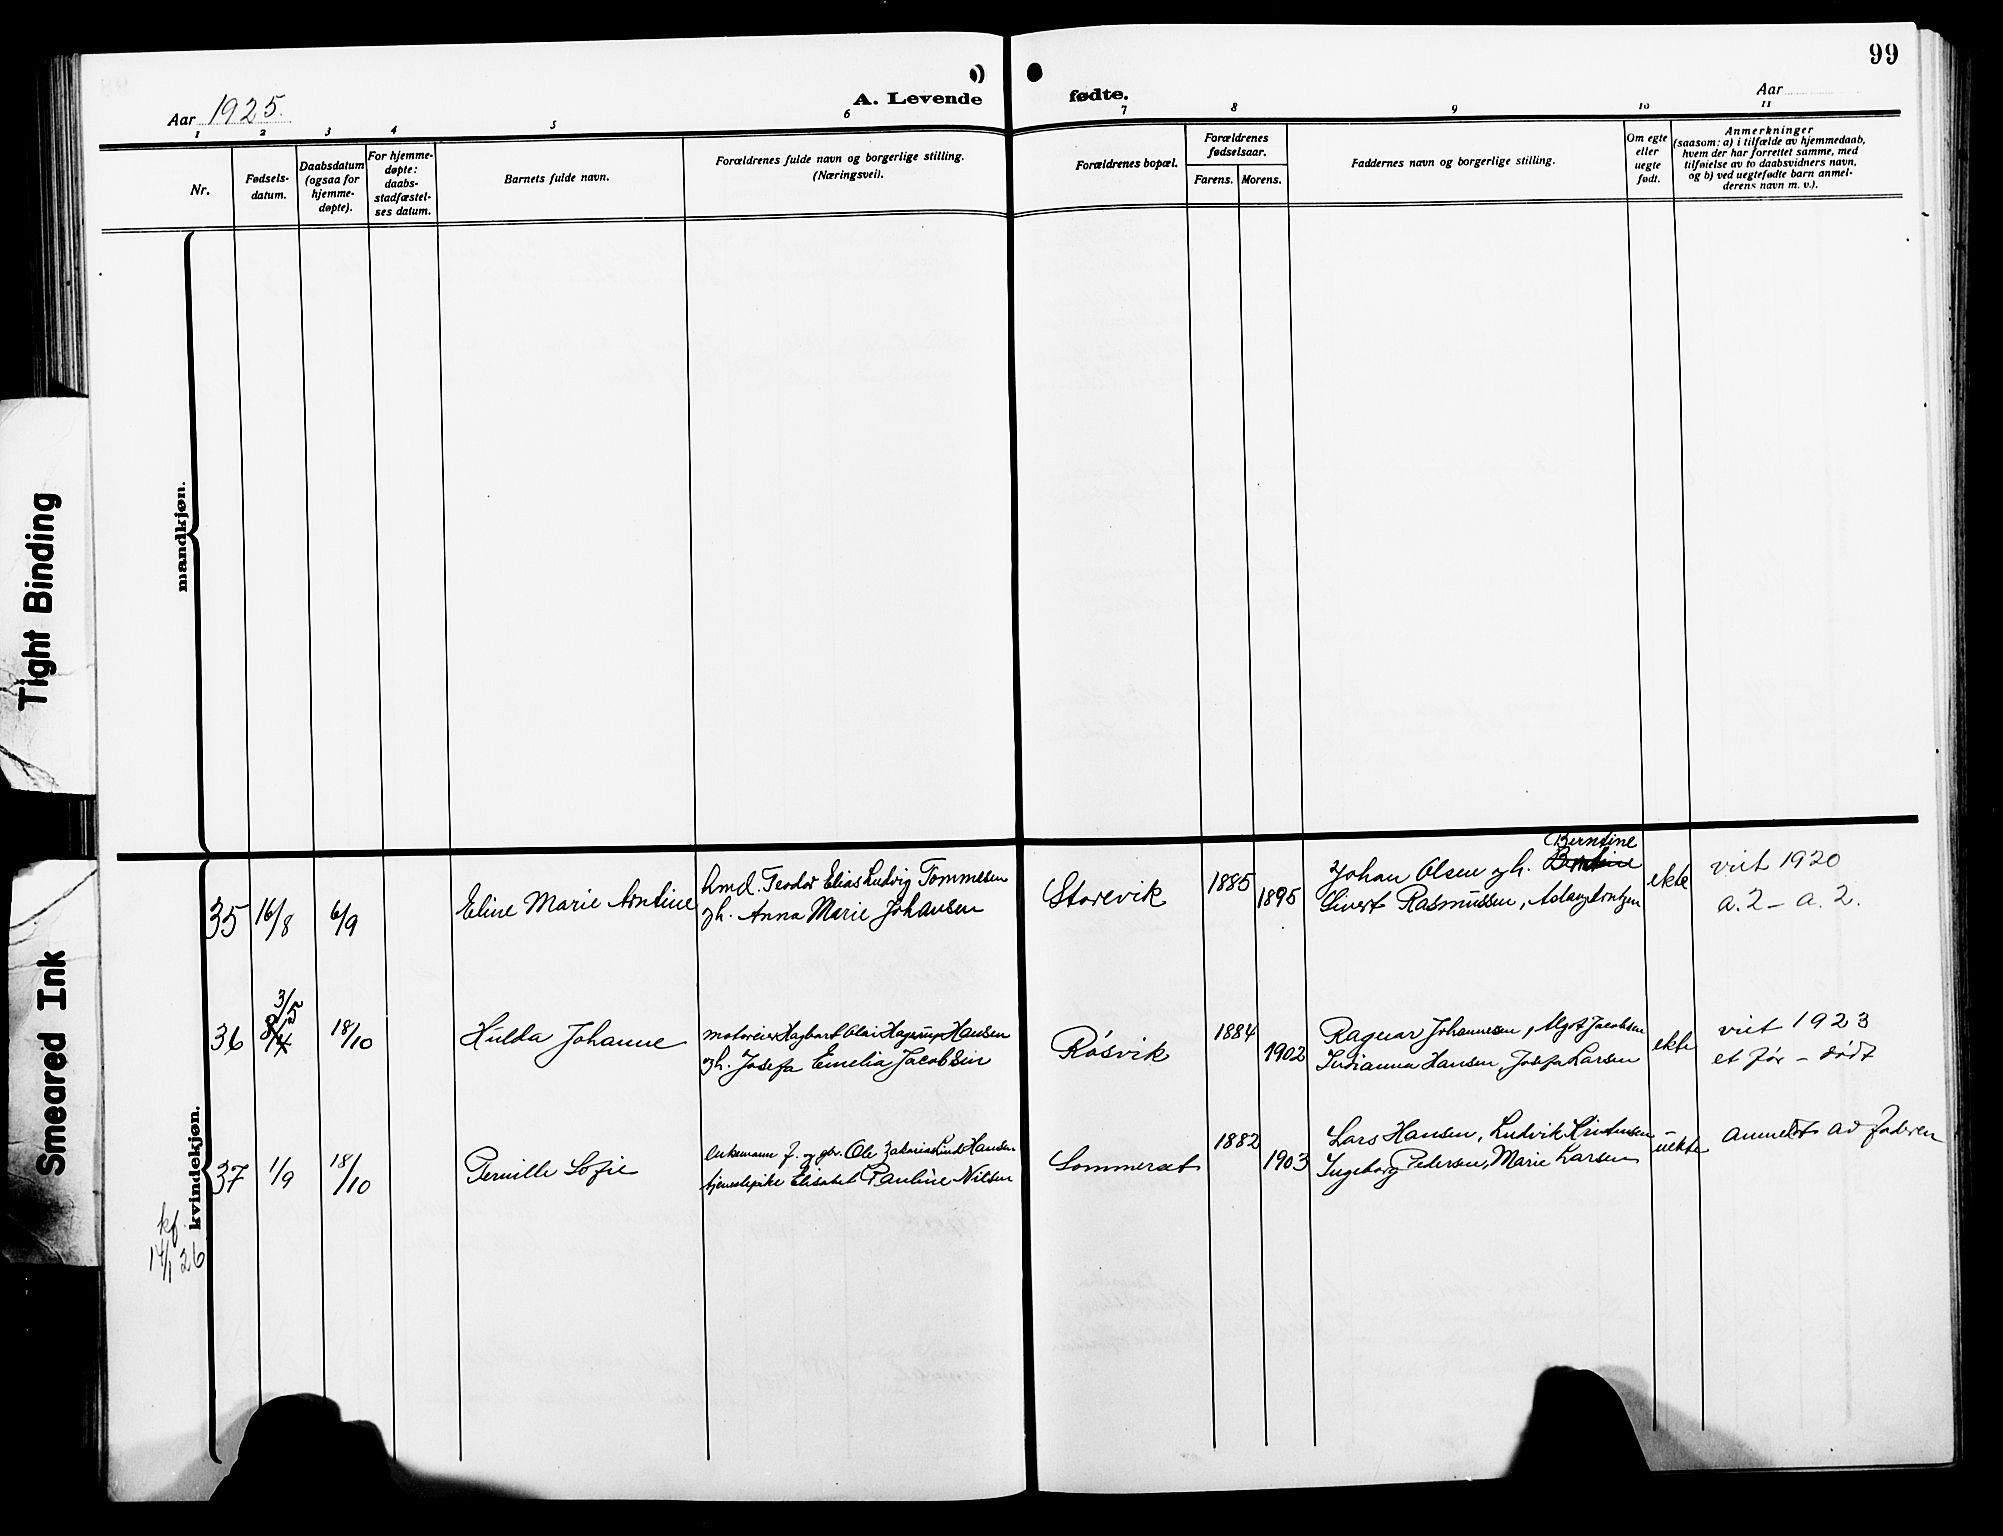 99
Aar 1925.
A. Levende fødte.
Aar
1 2 3 4 5 6 7 8 9 10 11
Nr.
Fødsels-
datum.
Daabsdatum
(ogsaa for
hjemme-
døpte).
For hjemme-
døpte:
daabs-
stadfæstel-
ses datum.
Barnets fulde navn.
Forældrenes fulde navn og borgerlige stilling.
(Næringsvei).
Forældrenes bopæl.
Forældrenes
fødselsaar.
Farens. Morens.
Faddernes navn og borgerlige stilling.
Om egte
eller
uegte
født.
Anmerkninger
(saasom: a) i tilfælde av hjemmedaab,
hvem der har forrettet samme, med
tilføielse av to daabsvidners navn,
og b) ved uegtefødte barn anmel-
derens navn m. v.).
mandkjøn.
Tight Binding
Smeared Ink
kvindekjøn.
35 16/8 6/9
Eline Marie Arntine
hmd. Teodor Elias Ludvig Tommesen
gh. Anna Marie Johansen
Storevik
1885
1895
Berntine
Johan Olsen gh.
Sivert Rasmussen, Aslaug Arntzen
ekte
viet 1920
a. 2 - a. 2.
3/5
36 8/4 18/10
Hulda Johanne
motoreier Hagbart Olai Hagerup Hansen
gh. Josefa Emelia Jacobsen
Røsvik
1884
1902
Ragnar Johannesen, Algot Jacobsen
Indianna Hansen, Josefa Larsen
ekte
viet 1923
et før - dødt
37 1/9 18/10
Pernille Sofie
enkemann f. og gbr. Ole Zakarias Lind Hansen
tjenestepike Elisabet Pauline Nilsen
Sommerset
1882
1903
Lars Hansen, Ludvik Kristensen
Ingeborg Pedersen, Marie Larsen
uekte
anmeldt av faderen
kf.
14/1 26